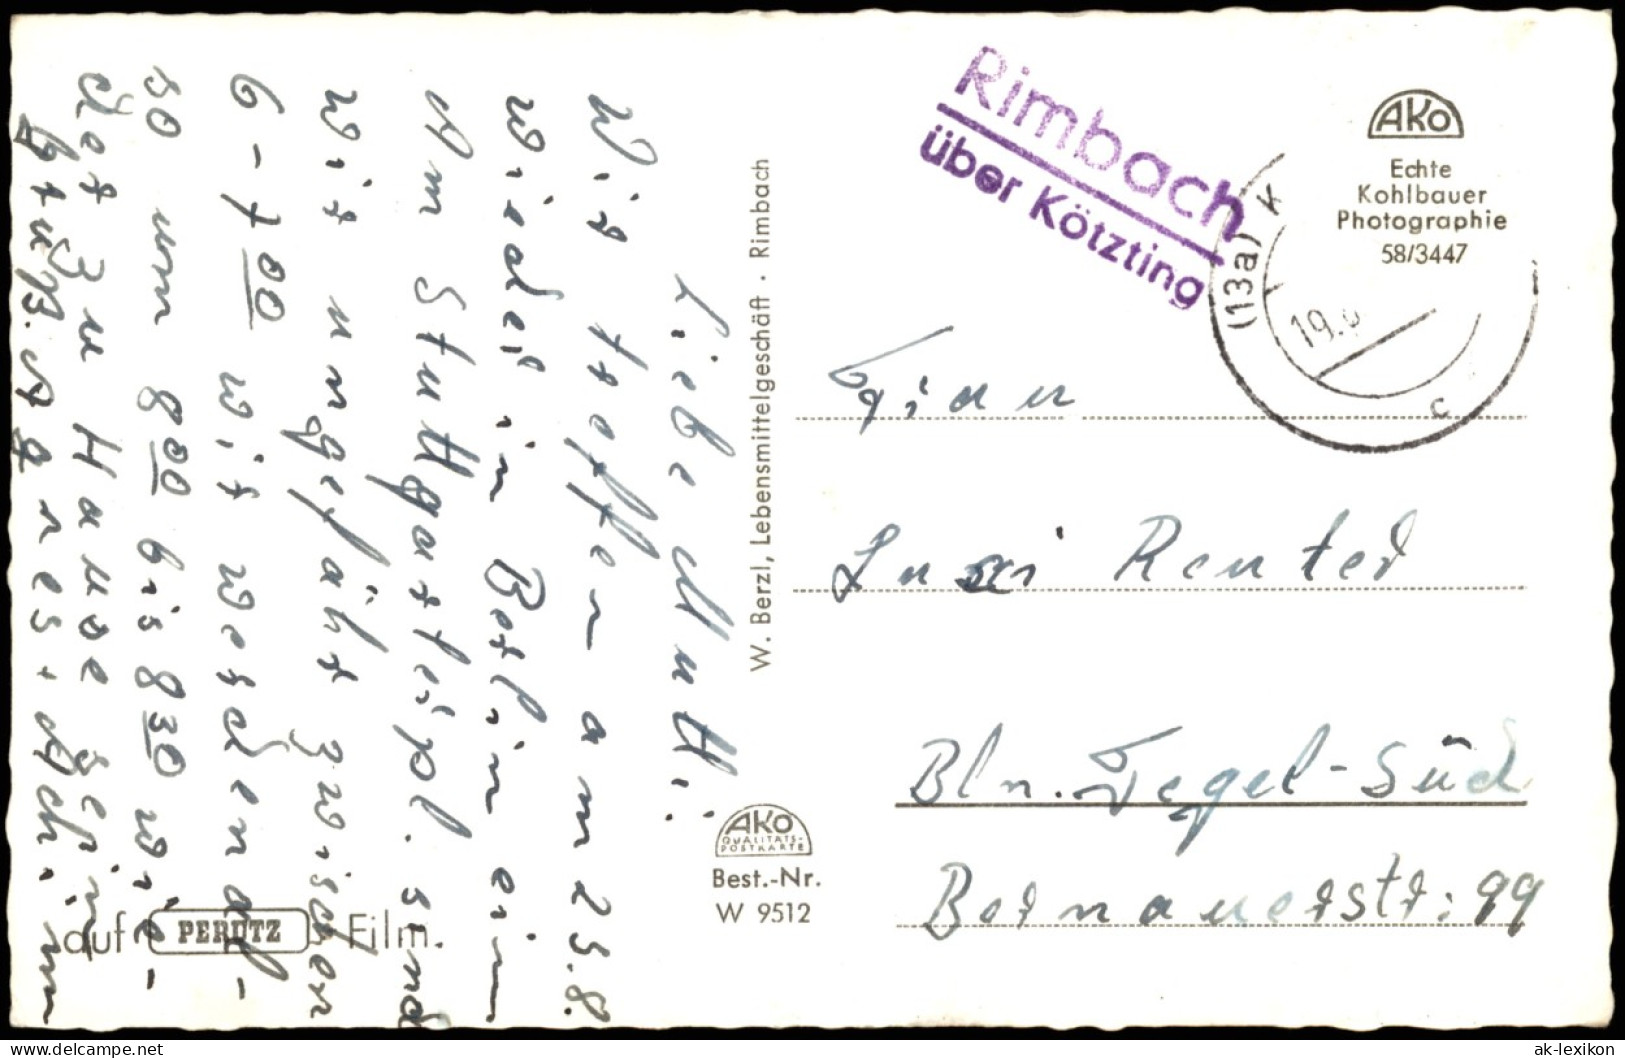 Liebe Mutti!
Wir treffen am 25.8.
wieder in Berlin ein
Am Stuttgarterpl. sind
wir ungefähr zwischen
6-7 00 wir werden al-
so um 8 00 bis 8 30 wie-
der zu Hause sein
Gruß. Agnes + Achim
W. Berzl, Lebensmittelgeschäft · Rimbach
AKO
QUALITÄTS-
POSTKARTE
Best.-Nr.
W 9512
auf PERUTZ Film.
Rimbach
über Kötzting
(13a) K
19.
c
AKO
Echte
Kohlbauer
Photographie
58/3447
Frau
Renter
Bln. Tegel-Süd
Bernauerstr. 99
ak-lexikon